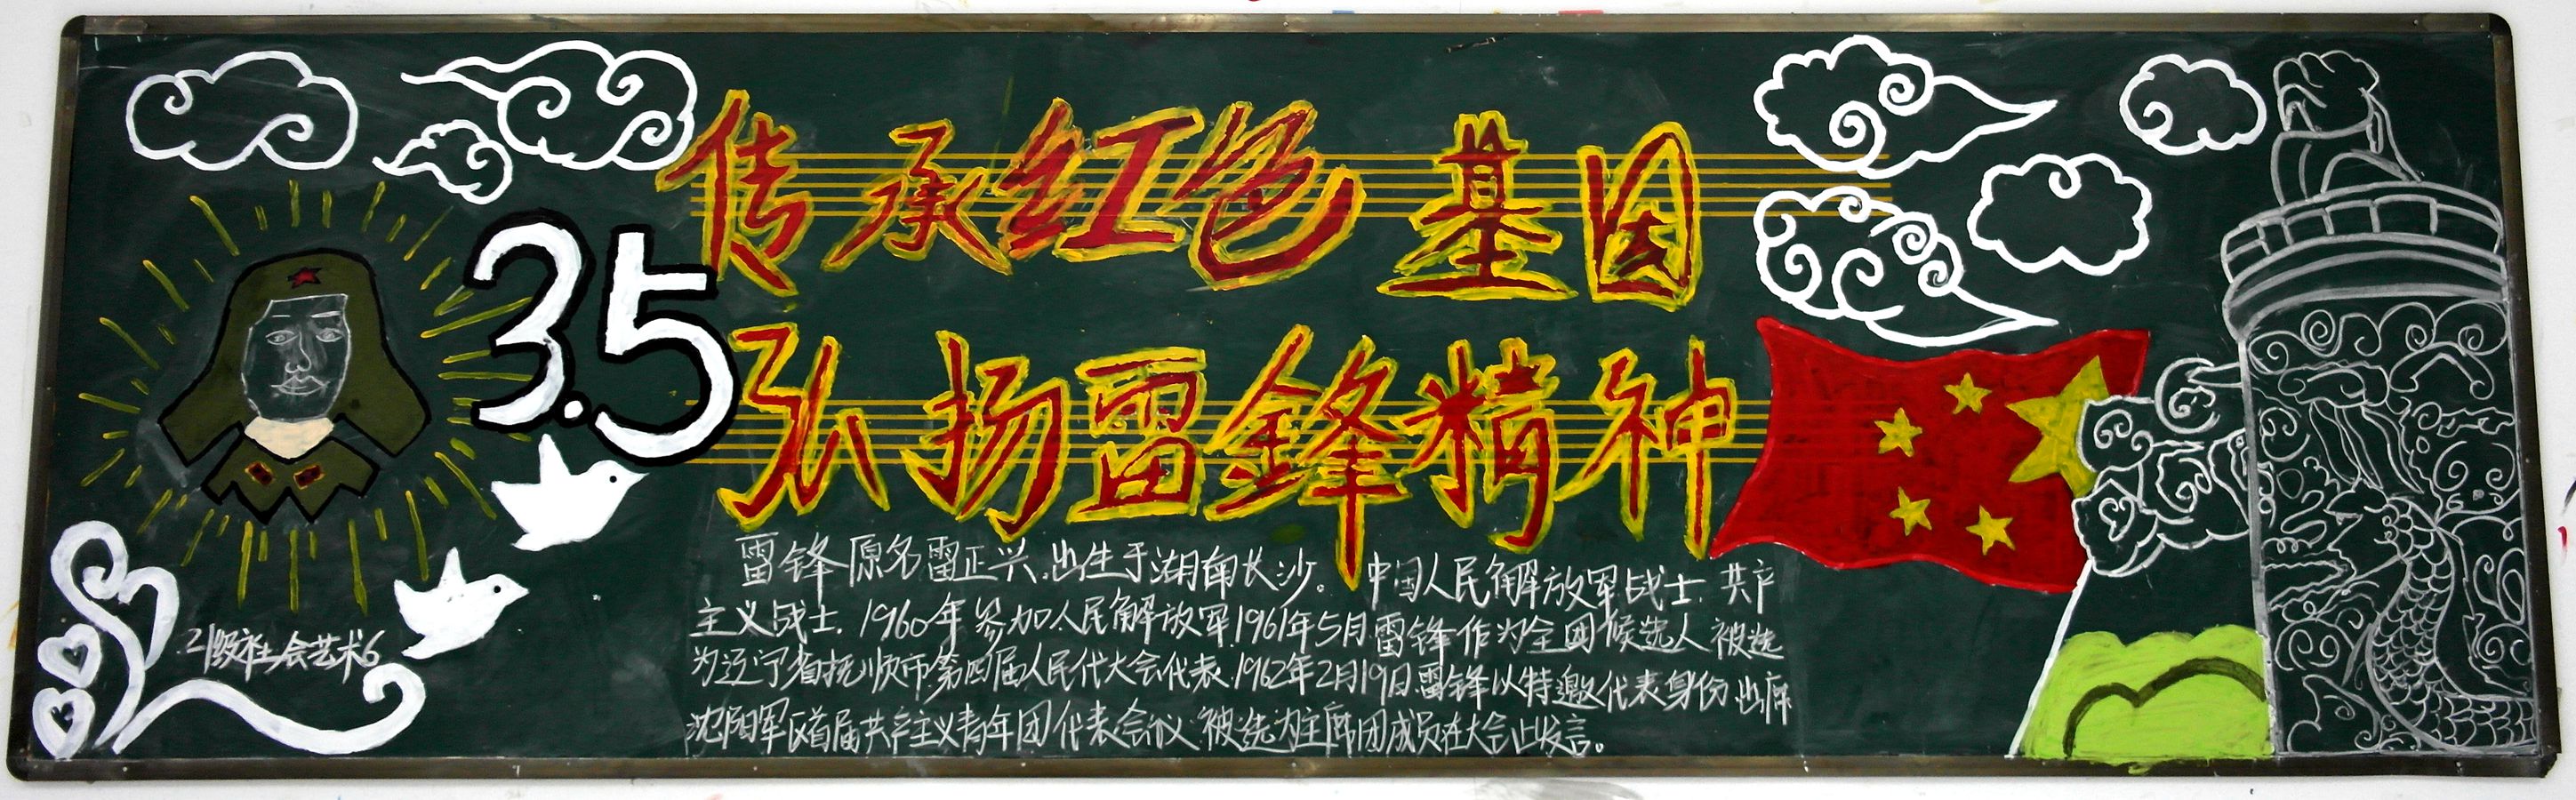 传承红色基因
3.5
弘扬雷鋒精神
雷锋原名雷正兴,出生于湖南长沙。中国人民解放军战士,共产
主义战士,1960年参加人民解放军1961年5月雷锋作为全国候选人被选
为辽宁省抚顺市第四届人民代大会代表.1962年2月19日雷锋以特邀代表身份出席
沈阳军区首届共产主义青年团代表会议,被选为主席团成员在大会上发言。
21级社会艺术6